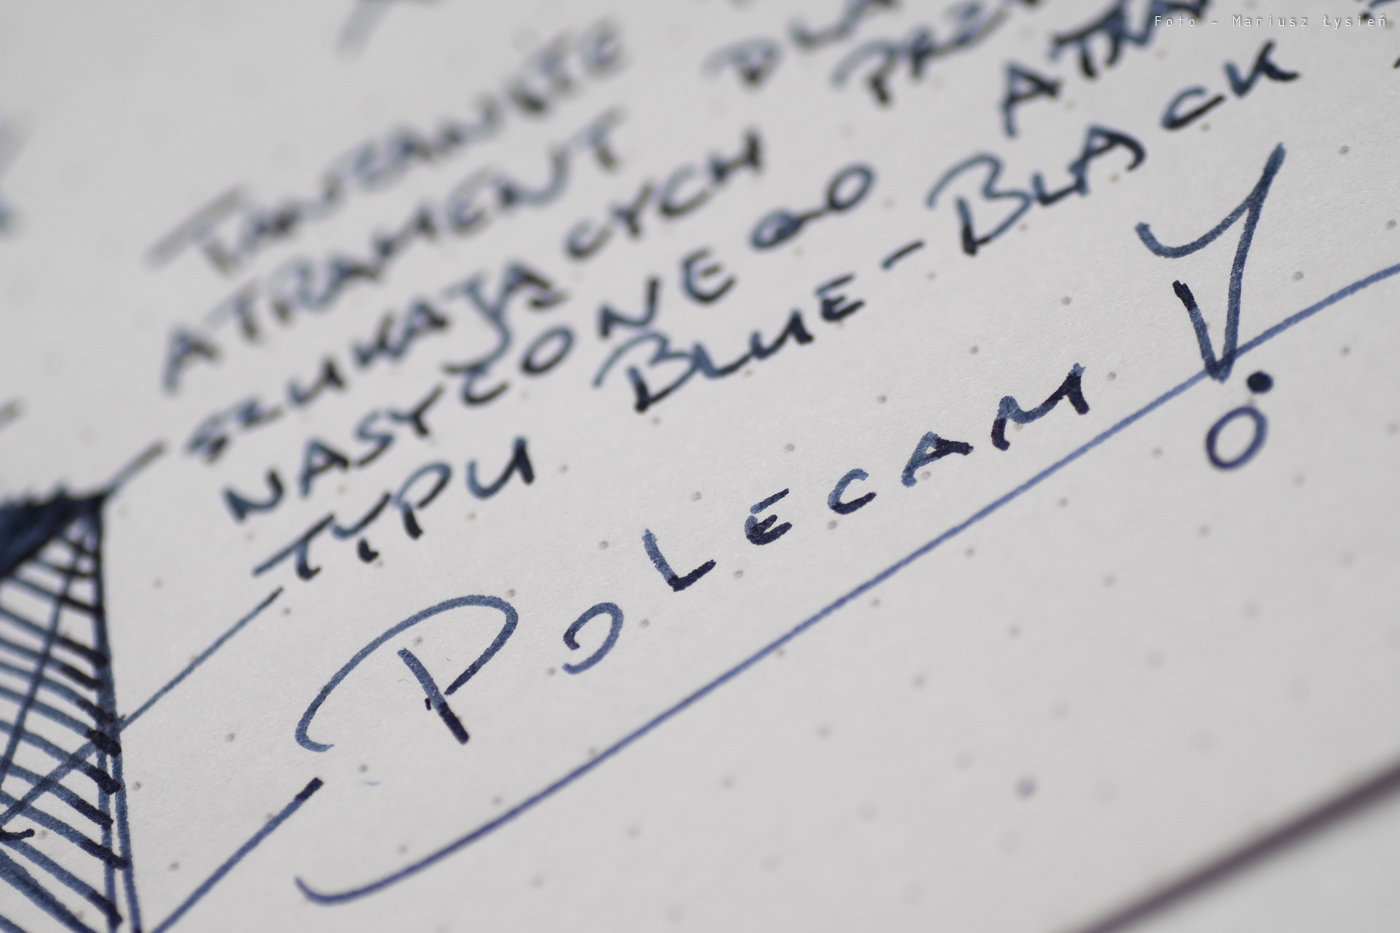 Foto - Mariusz Łysień
TANZANITE
ATRAMENT DLA
SZUKAJĄCYCH
NASYCONEGO
TYPU BLUE-BLACK
POLECAM!